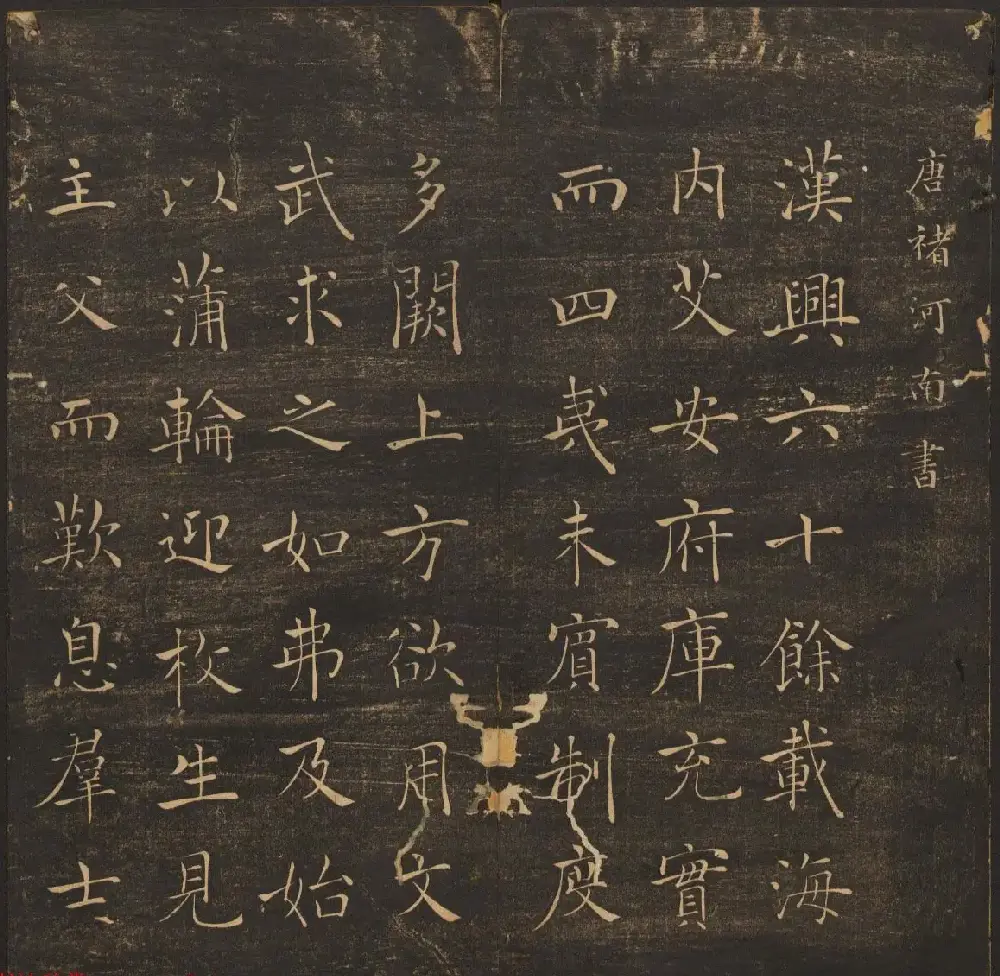 唐褚河南書
漢興六十餘載海
内艾安府庫充實
而四夷未賓制度
多闕上方欲用文
武求之如弗及始
以蒲輪迎枚生見
主父而歎息羣士